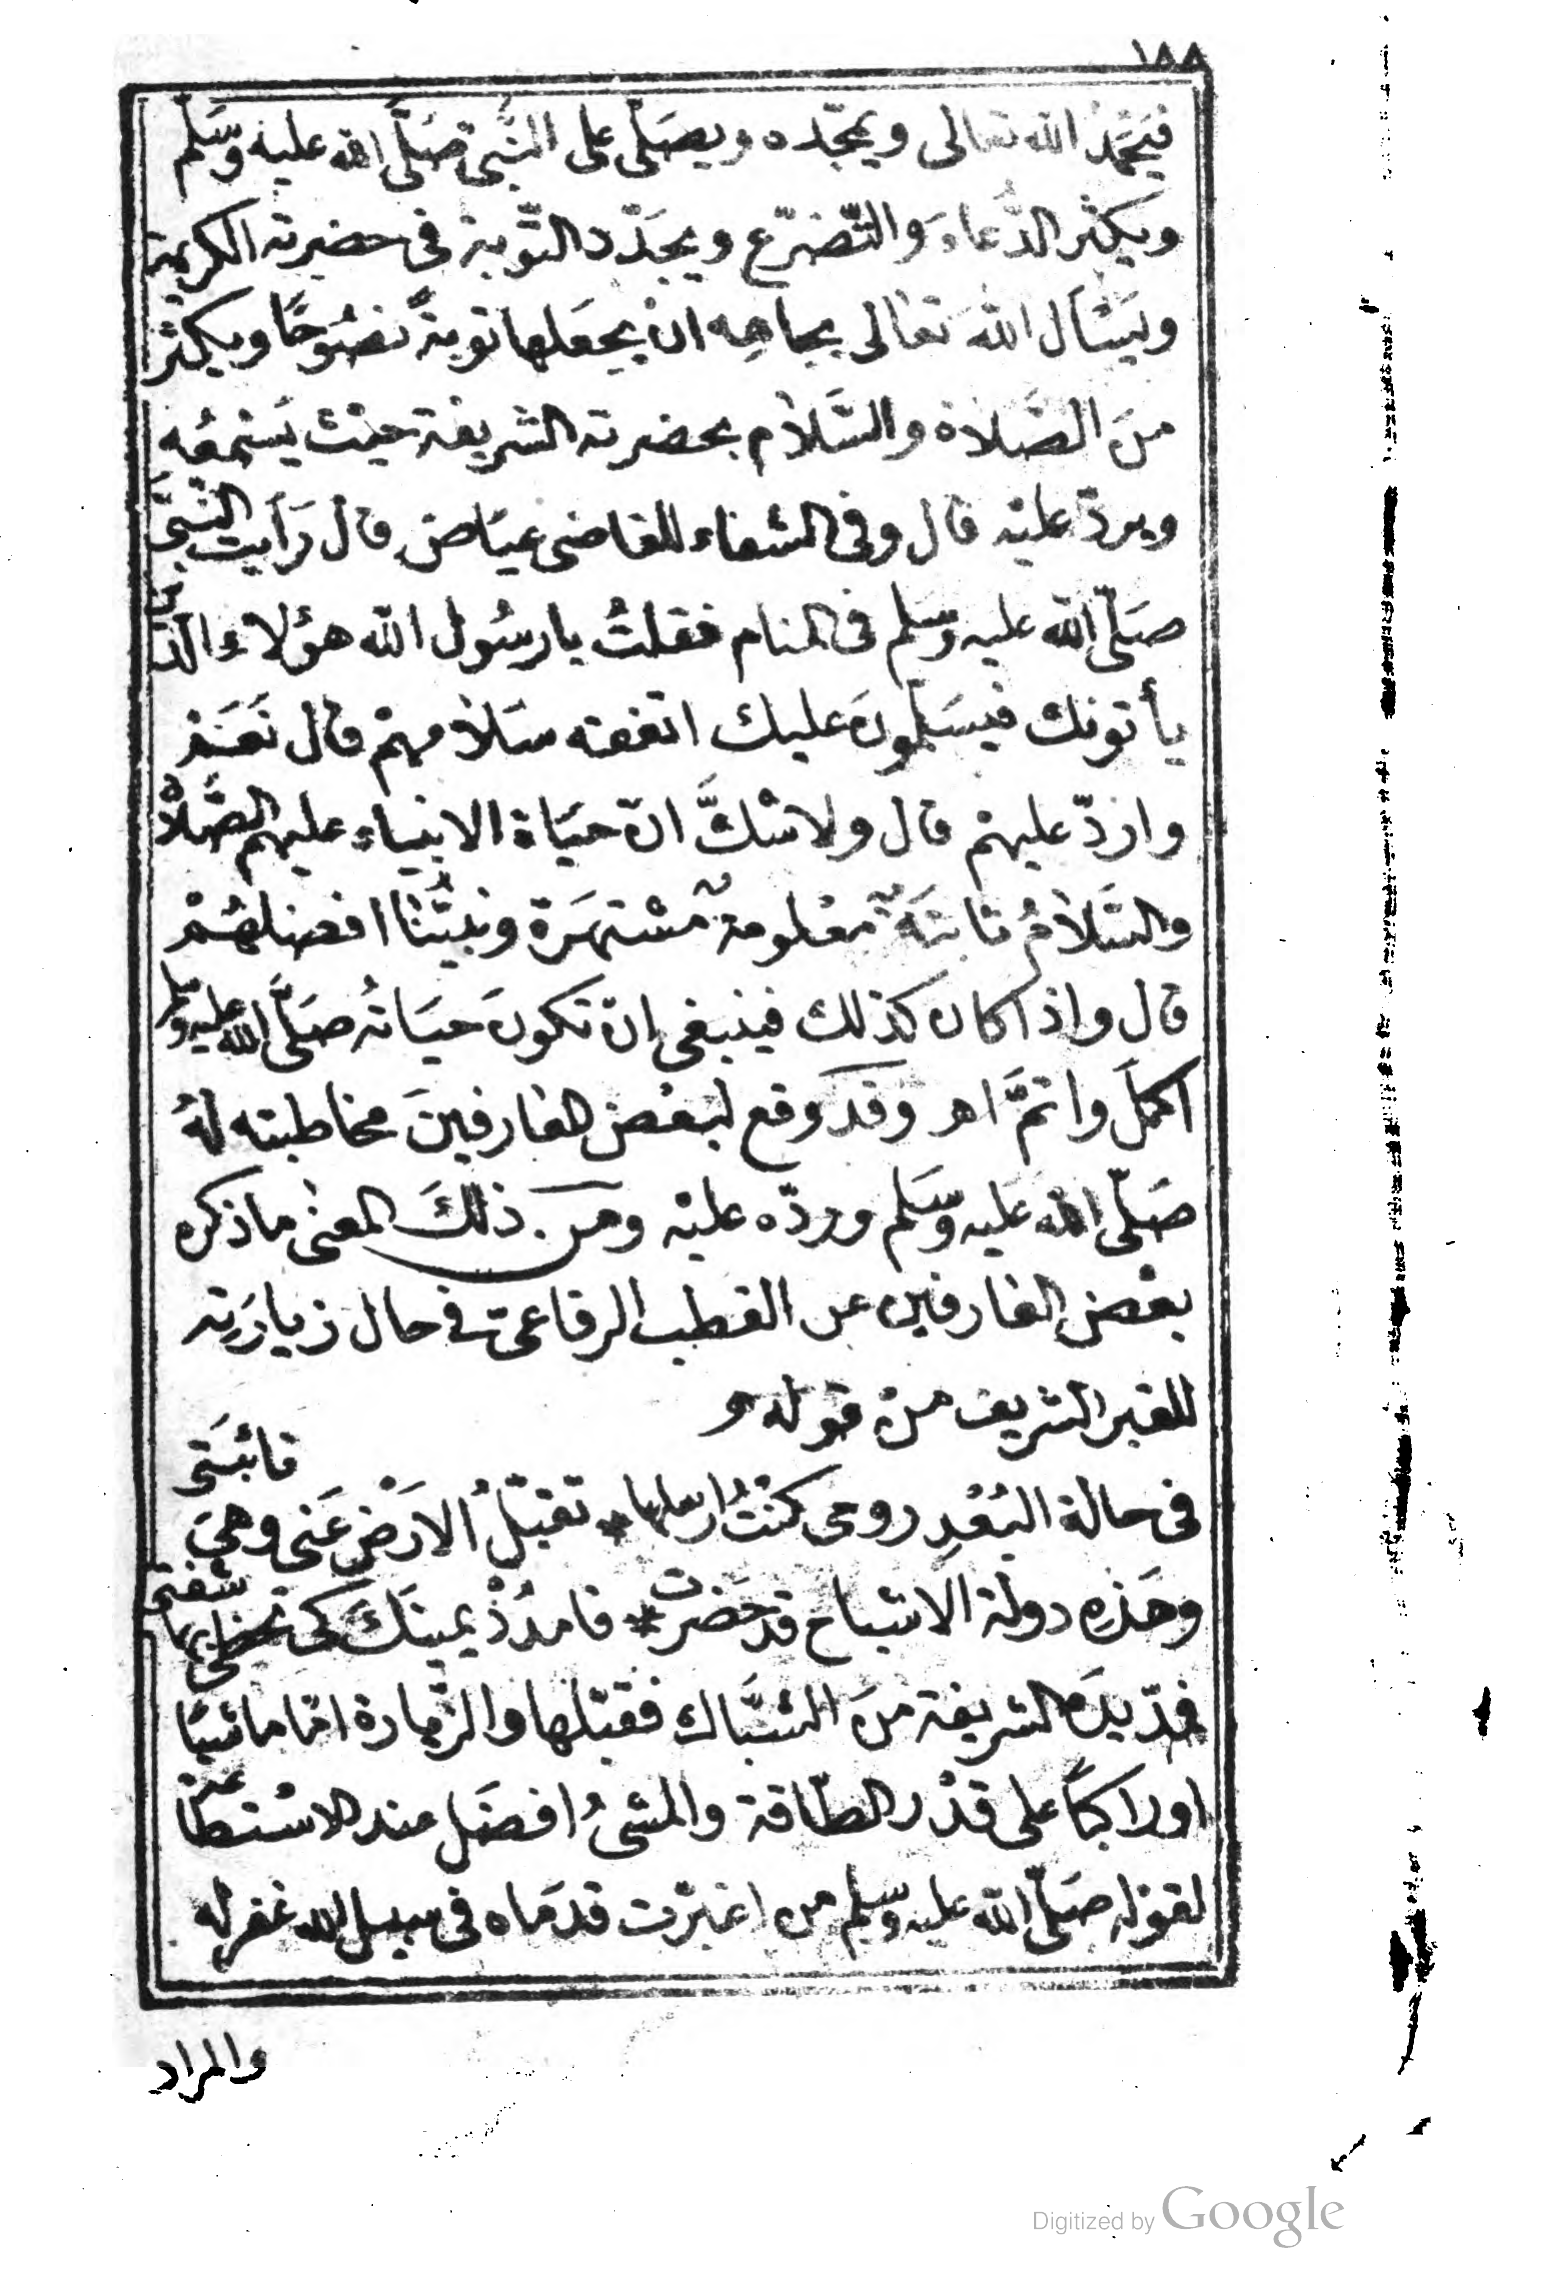 ١٨٨
فيَحْمَدُ الله تعالى ويمجّده ويصَلّى على النّبى صَلَّى الله عليه وسَلّم
ويكثر الدُّعاءَ والتّضرّع ويجَدّد التّوبة فى حضرته الكريمة
ويَسْأل اللهَ تعالى بجاهِه انْ يجعَلها توبةً نصُوحًا ويكثر
منَ الصَّلاة والسَّلام بحضرته الشريفة حيْث يَسْمعُه
ويردّ عليْه قال وفى الشفاء للقاضى عيَاض قال رَأيت النّبىَّ
صَلّى الله عليه وسَلم فى المنام فقلتُ يا رسُول الله هؤلاء الذين
يأتونك فيسَلّمونَ عليك اتفقه سَلامهمْ قال نَعَمْ
واردّ عليهمْ قال ولا شكَّ انّ حيَاة الانبياء عليهم الصَّلاة
والسَّلامُ ثابتَةٌ معْلومةٌ مسْتهَرَة ونبيُّنا افضلهُمْ
قال واذا كان كذلك فينبغى انْ تكونَ حيَاتُه صَلَّى الله عليه وسلم
اكملَ واتمَّ اهـ وقد وقع لبعْض العارفينَ مخاطبته لهُ
صَلّى الله عَليه وسَلم وردّه عليْه ومن ذلكَ المعنى ما ذكره
بعْض العارفين عن القطب الرفاعىّ فى حال زيارَته
للقبر الشريف منْ قوله
فى حالة البُعْدِ روحى كنْتُ ارسلها * تقبّلُ الارَْضَ عَنى وهىَ نائبَتى
وهَذه دولة الاشباح قد حَضَرت * فامدُدْ يمينَكَ كى تحظى بها شفتى
فمدّ يدَه الشريفة منَ الشبَّاك فقبّلها والزّيارة امّا ماشيًا
او راكبًا على قدْر الطّاقة والمشىُ افضَل عند الاسْتطاعة
لقوْله صَلّى الله عليه وسلم من اغبرّت قدمَاه فى سبيل الله غفر له
والمراد
Digitized by Google